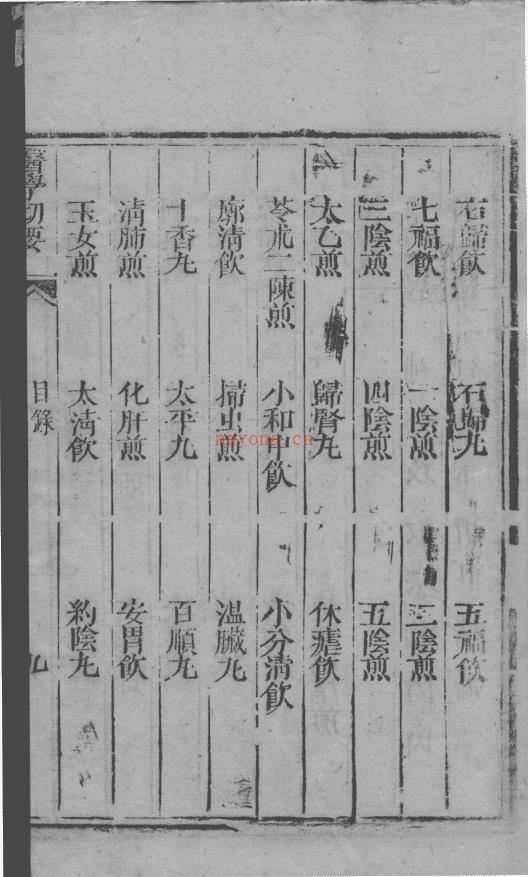 右歸飲　右歸丸　五福飲
七福飲　一陰煎　二陰煎
三陰煎　四陰煎　五陰煎
太乙煎　歸腎丸　休瘧飲
苓朮二陳煎　小和中飲　小分清飲
廓清飲　掃虫煎　温臟丸
十香丸　太平丸　百順丸
清肺煎　化肝煎　安胃飲
玉女煎　太清飲　約陰丸
醫學切要　目錄　九
nayona.cn